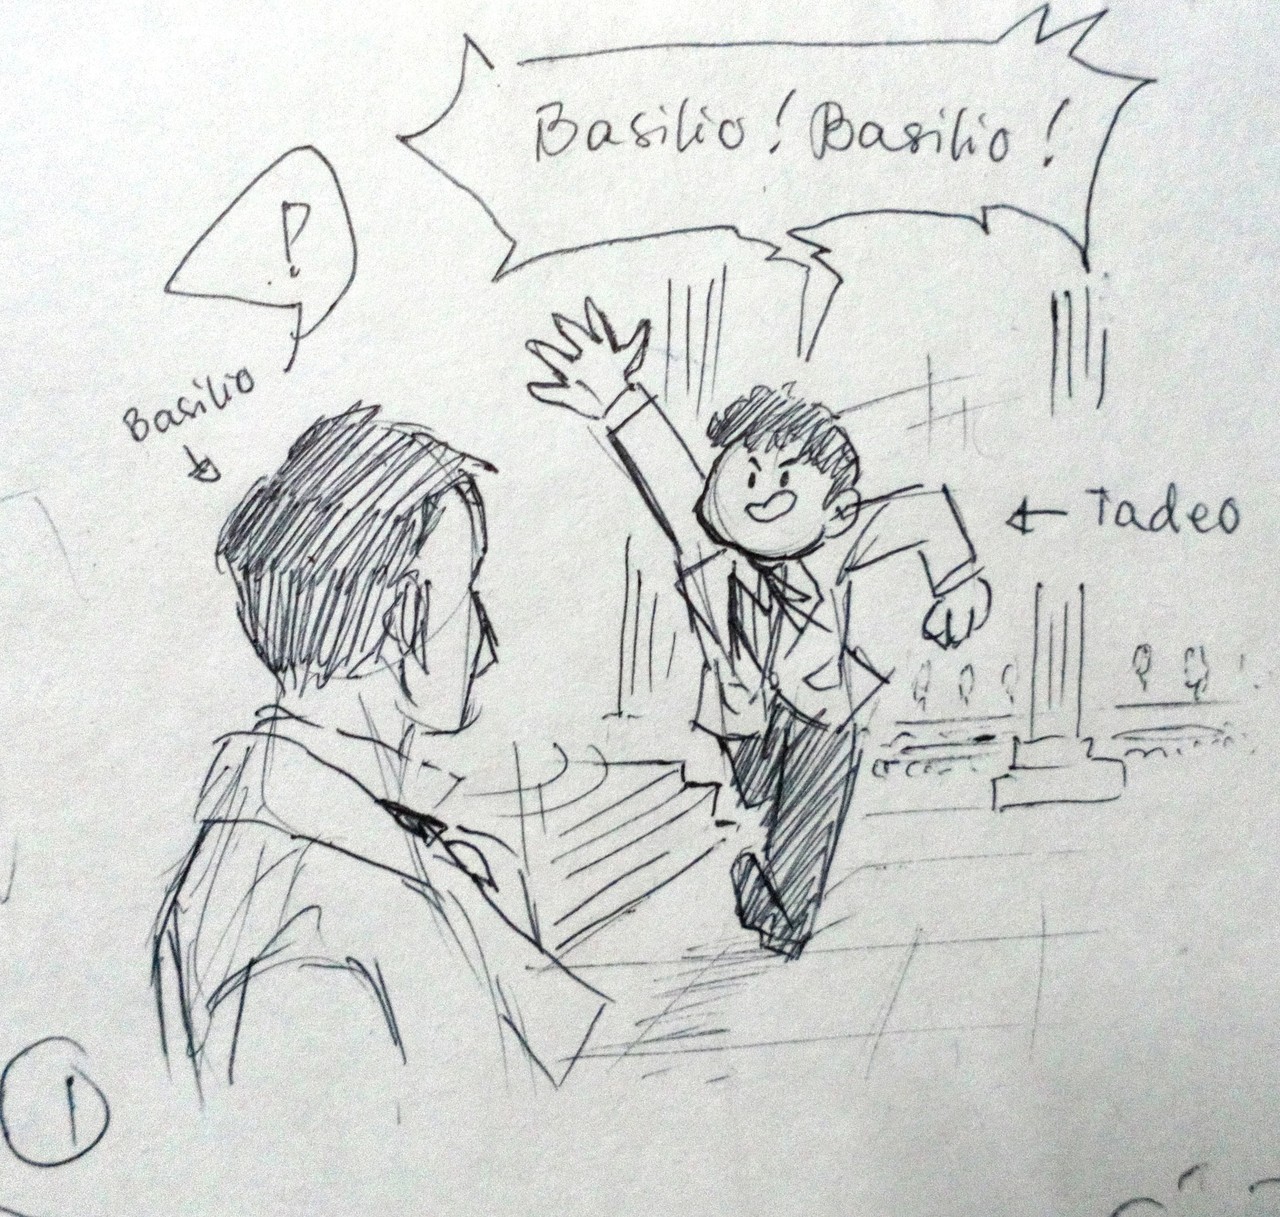 Basilio! Basilio!
!
Basilio
Tadeo
1